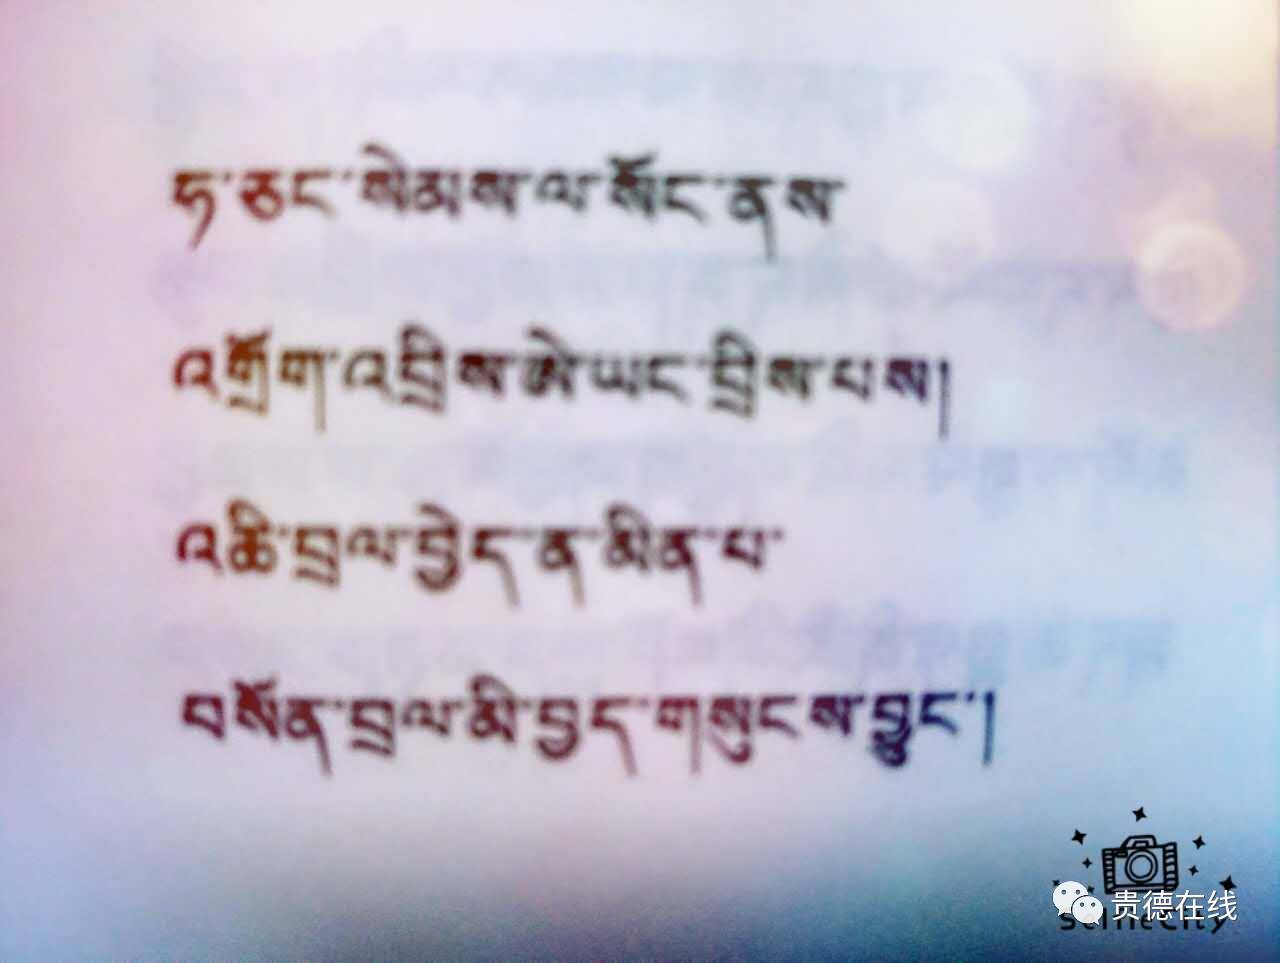 ཧ་ཅང་སེམས་ལ་སོང་ནས
འགྲོག་འདྲིས་ཨེ་ཡང་དྲིས་པས།
འཆི་བྲལ་བྱེད་ན་མིན་པ་
བསོན་བྲལ་མི་བྱད་གསུངས་བྱུང་།
贵德在线
SelfieCity